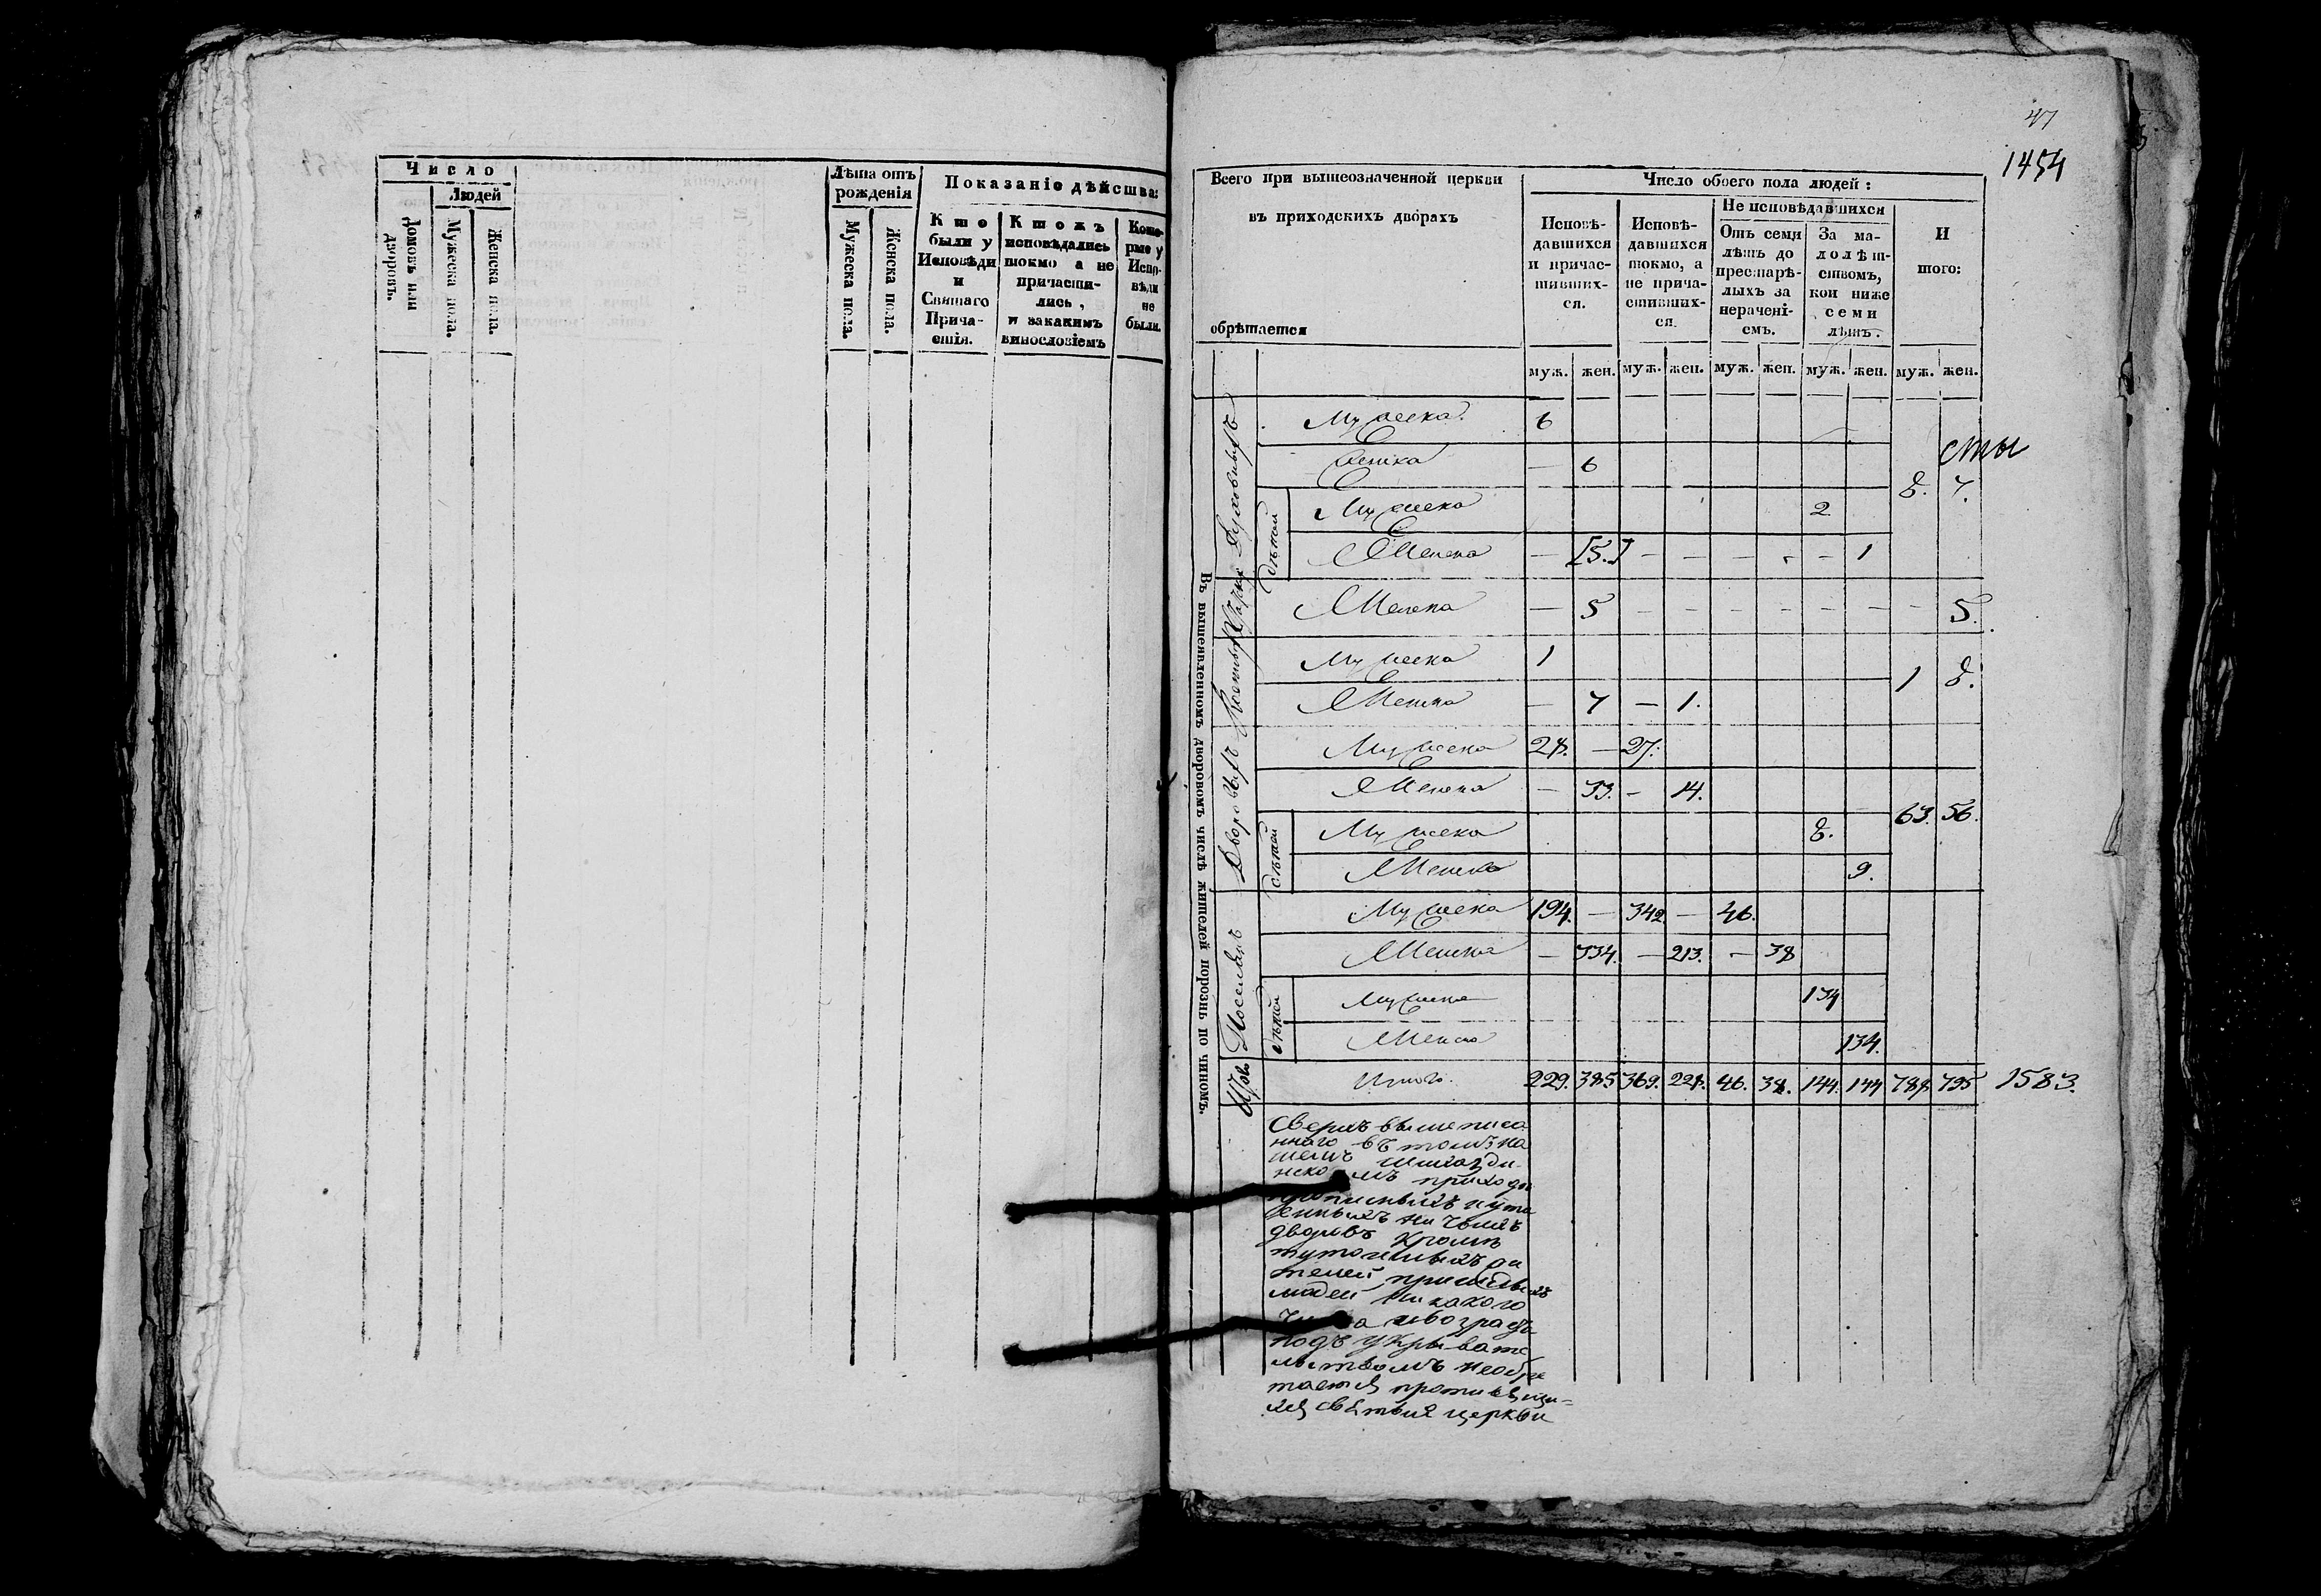 Число
Людей
Домовъ или дворовъ.
Мужеска пола.
Женска пола.
Лѣта отъ рожденія
Мужеска пола.
Женска пола.
Показаніе дѣйства:
Кто были у Исповѣди и Святаго Причастія.
Ктожъ исповѣдались токмо а не причастились, и закакимъ винословіемъ
Которые у Исповѣди не были.
47
1454
Всего при вышеозначенной церкви
въ приходскихъ дворахъ
обрѣтается
Число обоего пола людей:
Исповѣдавшихся и причастившихся.
Исповѣдавшихся токмо, а не причастившихся.
Не исповѣдавшихся
Отъ семи лѣтъ до престарѣлыхъ за нераченіемъ.
За малолѣтствомъ, кои ниже семи лѣтъ.
И того:
муж. жен. муж. жен. муж. жен. муж. жен. муж. жен.
Въ вышеявленномъ дворовомъ числѣ жителей порознь по чиномъ.
Духовныхъ
Мужеска 6
сты
Женска — 6
8. 7.
дѣтей
Мужеска 2
Женска — [5.] — — — - — 1
Женска — 5 — — — — — — — 5.
Мужеска 1
1 8.
Женска — 7 — 1.
Дворовыхъ
Мужеска 28. — 27.
Женска — 33. — 14.
63. 56.
дѣтей
Мужеска 8.
Женска 9.
Поселянъ
Мужеска 194. — 342 — 46.
Женска — 334. — 213. — 38
дѣтей
Мужеска 134
Женска 134.
Итого. 229. 385 369. 228. 46. 38. 144. 144 788. 795 1583.
Сверхъ вышеписа
ннаго въ томъ на
шемъ
приходѣ
прописныхъ и ута
енныхъ ни чьихъ
дворовъ кромѣ
тутошныхъ жи
телей пришлыхъ
людей никакого
чина ивозраста
подъ укрывате
льствомъ необрѣ
тается
церкви